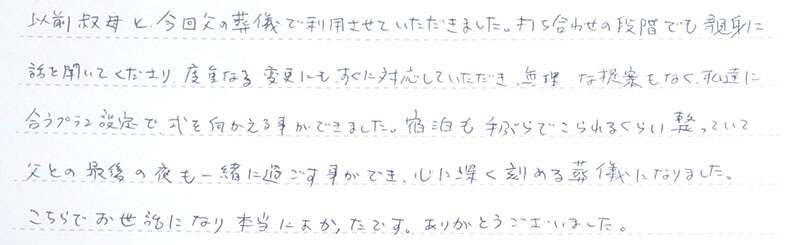 以前叔母と、今回父の葬儀で利用させていただきました。打ち合わせの段階でも親身に
話を聞いてくださり、度重なる変更にも、すぐに対応していただき、無理な提案もなく、私達に
合うプラン設定で、式を向かえる事ができました。宿泊も手ぶらでこられるくらい整っていて
父との最後の夜も一緒に過ごす事ができ、心に深く刻める葬儀になりました。
こちらでお世話になり本当によかったです。ありがとうございました。